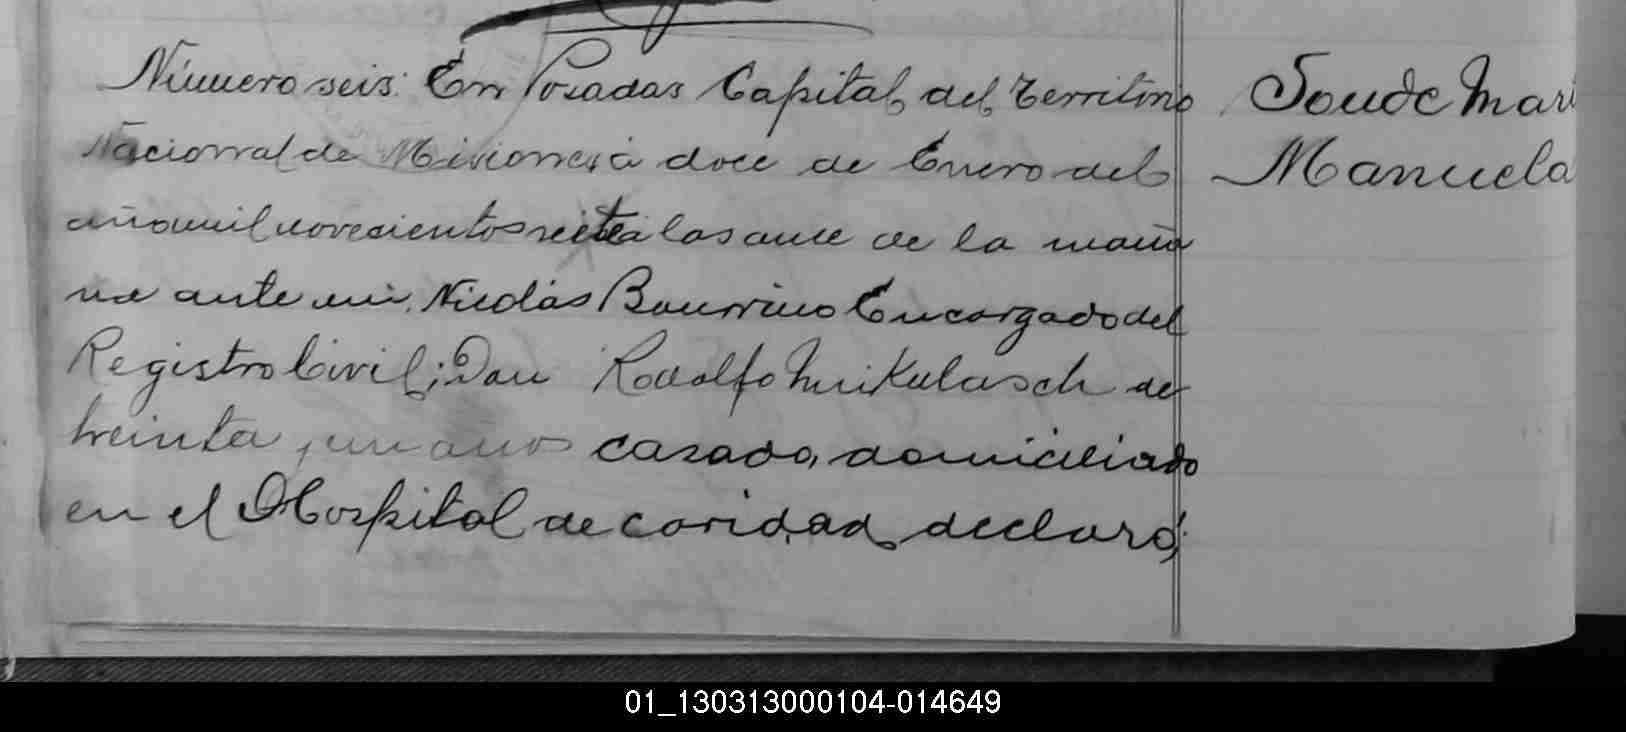 Número seis: En Posadas Capital del Territorio
Nacional de Misiones, á doce de Enero del
año mil novecientos siete á las once de la maña
na ante mi, Nicolás Bourrino Encargado del
Registro Civil; Don Rodolfo Mikulasch de
treinta y un anos casado, domiciliado
en el Hospital de caridad, declaró;
Soude Mari
Manuela
01_130313000104-014649